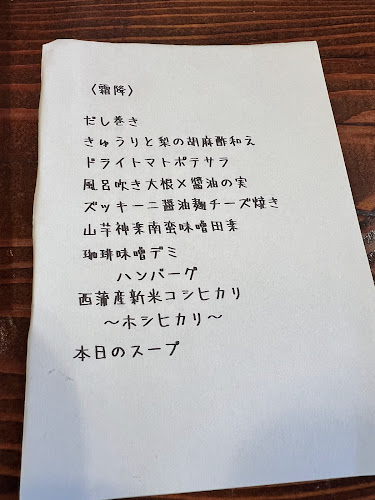 〈霜降〉
だし巻き
きゅうりと梨の胡麻酢和え
ドライトマトポテサラ
風呂吹き大根×醬油の実
ズッキーニ醤油麹チーズ焼き
山芋神楽南蛮味噌田楽
珈琲味噌デミ
ハンバーグ
西蒲産新米コシヒカリ
～ホシヒカリ～
本日のスープ